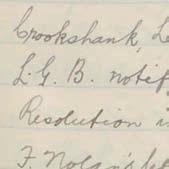 Crookshank, Le
L.G.B. notif
Resolution i
F. Nolan